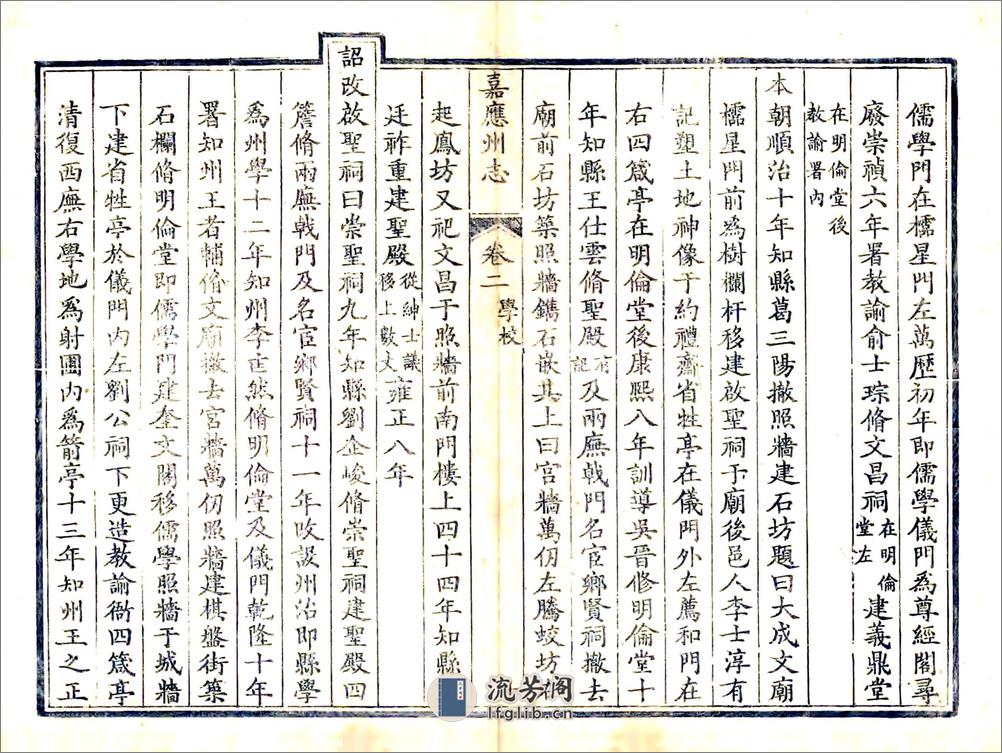 儒學門在櫺星門左萬歷初年即儒學儀門爲尊經閣尋
廢崇禎六年署教諭俞士琮脩文昌祠在明倫堂左建義鼎堂
在明倫堂後教諭署內
本朝順治十年知縣葛三陽撤照牆建石坊題曰大成文廟
櫺星門前爲樹欄杆移建啟聖祠于廟後邑人李士淳有
記塑土地神像于約禮齋省牲亭在儀門外左薦和門在
右四箴亭在明倫堂後康熙八年訓導吳晉修明倫堂十
年知縣王仕雲脩聖殿有記及兩廡戟門名宦鄉賢祠撤去
廟前石坊築照牆鐫石嵌其上曰宮牆萬仞左騰蛟坊
嘉應州志 卷二 學校
起鳳坊又祀文昌于照牆前南門樓上四十四年知縣
廷祚重建聖殿從紳士議移上數丈雍正八年
詔改啟聖祠曰崇聖祠九年知縣劉企峻脩崇聖祠建聖殿四
簷脩兩廡戟門及名宦鄉賢祠十一年改設州治即縣學
爲州學十二年知州李匡然脩明倫堂及儀門乾隆十年
署知州王者輔脩文廟撤去宮牆萬仞照牆建棋盤街築
石欄脩明倫堂即儒學門建奎文閣移儒學照牆于城牆
下建省牲亭於儀門內左劉公祠下更造教諭衙四箴亭
清復西廡右學地爲射圃內爲箭亭十三年知州王之正
流芳閣
lfglib.cn